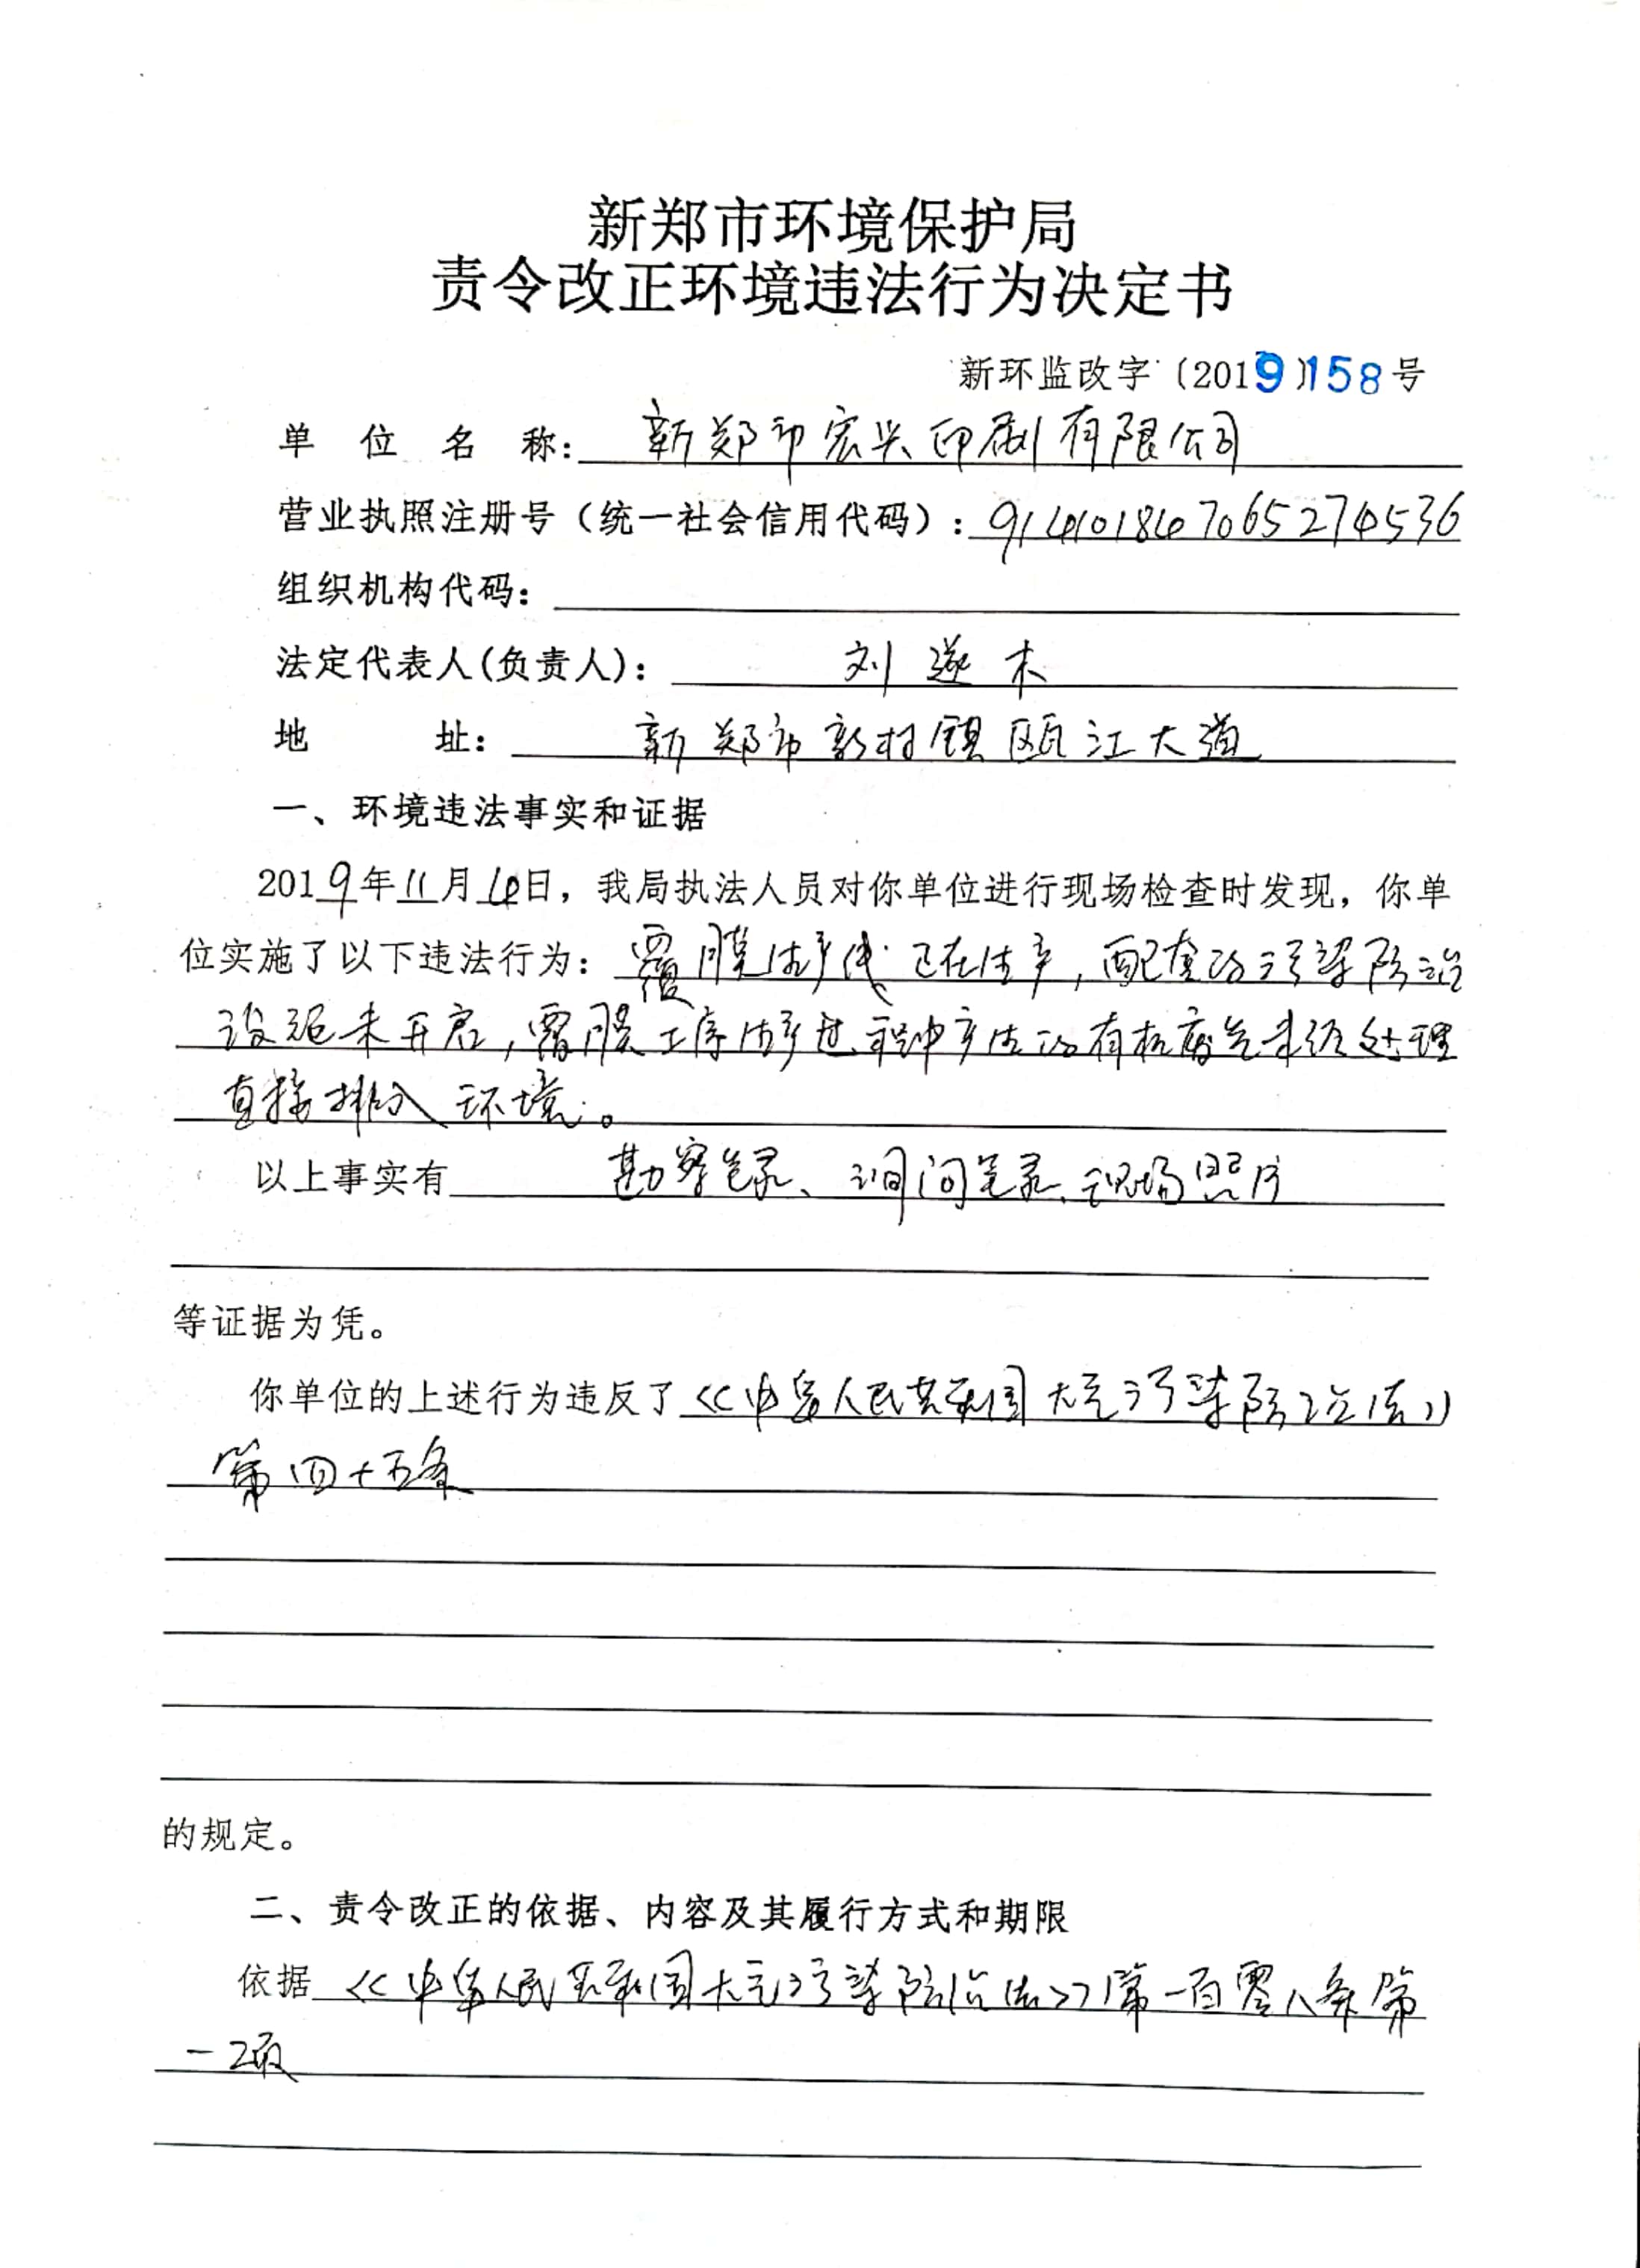 新郑市环境保护局
责令改正环境违法行为决定书
新环监改字〔2019〕158号
单位名称：新郑市宏兴印刷有限公司
营业执照注册号（统一社会信用代码）：914101847065274536
组织机构代码：
法定代表人(负责人)： 刘 木
地址：新郑市新村镇瓯江大道
一、环境违法事实和证据
2019年11月4日，我局执法人员对你单位进行现场检查时发现，你单
位实施了以下违法行为：覆膜生产线正在生产，配套的污染防治
设施未开启，覆膜工序生产过程中产生的有机废气未经处理
直接排入环境。
以上事实有勘察笔录、询问笔录、现场照片
等证据为凭。
你单位的上述行为违反了《中华人民共和国大气污染防治法》
第四十五条
的规定。
二、责令改正的依据、内容及其履行方式和期限
依据《中华人民共和国大气污染防治法》第一百零八条第
一项